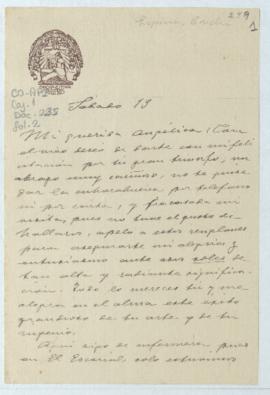 249
1
Espina, Concha
CO-AP
Caj. 1
Doc. 235
Fol. 2
Sabado 13
Mi querida Angélica: Con
el vivo deseo de darte con mi feli
citación por tu gran triunfo, un
abrazo muy cariñoso, no te quise
dar la enhorabuena por teléfono
ni por carta, y fracasada mi
visita, pues no tuve el gusto de
hallaros, apelo a estos renglones
para asegurarte mi alegría y
entusiasmo ante esos
tan alta y radiante significa-
ción. Todo lo mereces tú y me
alegra en el alma este éxito
grandioso de tu arte y de tu
ingenio.
Aquí sigo de enfermera, pues
en El Escorial, solo estuvimos